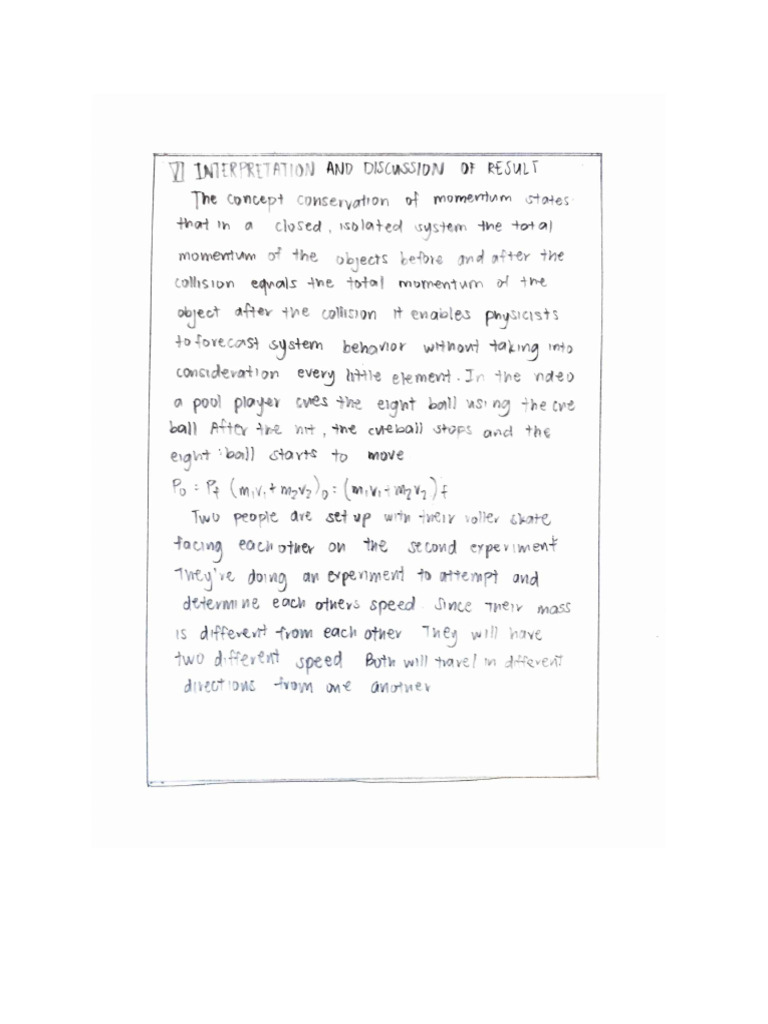 VI INTERPRETATION AND DISCUSSION OF RESULT
The concept conservation of momentum states
that in a closed, isolated system the total
momentum of the objects before and after the
collision equals the total momentum of the
object after the collision it enables physicists
to forecast system behavior without taking into
consideration every little element. In the video
a pool player cues the eight ball using the cue
ball After the hit, the cueball stops and the
eight ball starts to move
P₀ = P_f (m₁v₁ + m₂v₂)₀ = (m₁v₁ + m₂v₂) f
Two people are set up with their roller skate
facing each other on the second experiment
They're doing an experiment to attempt and
determine each others speed. Since their mass
is different from each other They will have
two different speed Both will travel in different
directions from one another